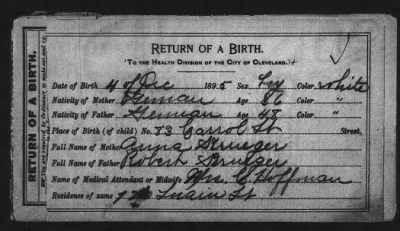 RETURN OF A BIRTH.
RETURN OF A BIRTH.
To the Health Division of the City of Cleveland.
Date of Birth 4 of Dec 1895 Sex Boy Color white
Nativity of Mother German Age 36 Color "
Nativity of Father German Age 48 Color "
Place of Birth (of child) No. 83 Carrol St Street,
Full Name of Mother Anna Krueger
Full Name of Father Robert Krueger
Name of Medical Attendant or Midwife Mrs C Hoffman
Residence of same St